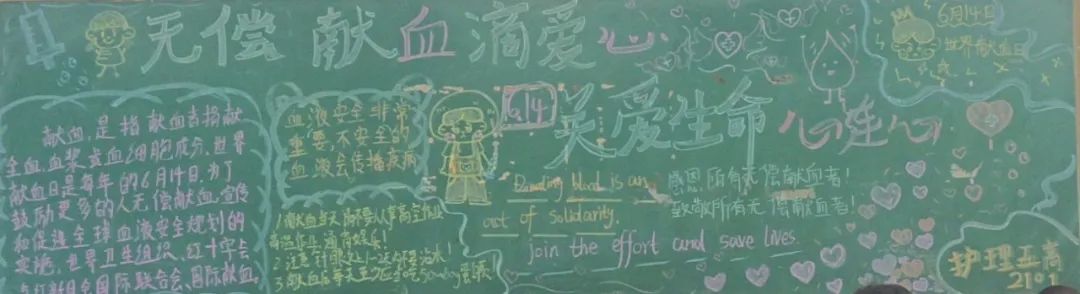 无偿献血滴爱心
6月14日
世界献血日
献血,是指献血者捐献
全血、血浆或血细胞成分。世界
献血日是每年的6月14日,为了
鼓励更多的人无偿献血,宣传
和促进全球血液安全规划的
实施,世界卫生组织、红十字会
国际联合会、国际献血
血液安全非常
重要,不安全的
血液会传播疾病
1.献血当天
高空作业
2.注意针眼处
沾水!
3.献血后
6.14
关爱生命 心连心
Donating blood is an
act of solidarity.
join the effort and save lives.
感恩所有无偿献血者!
致敬所有无偿献血者!
护理五高
2101